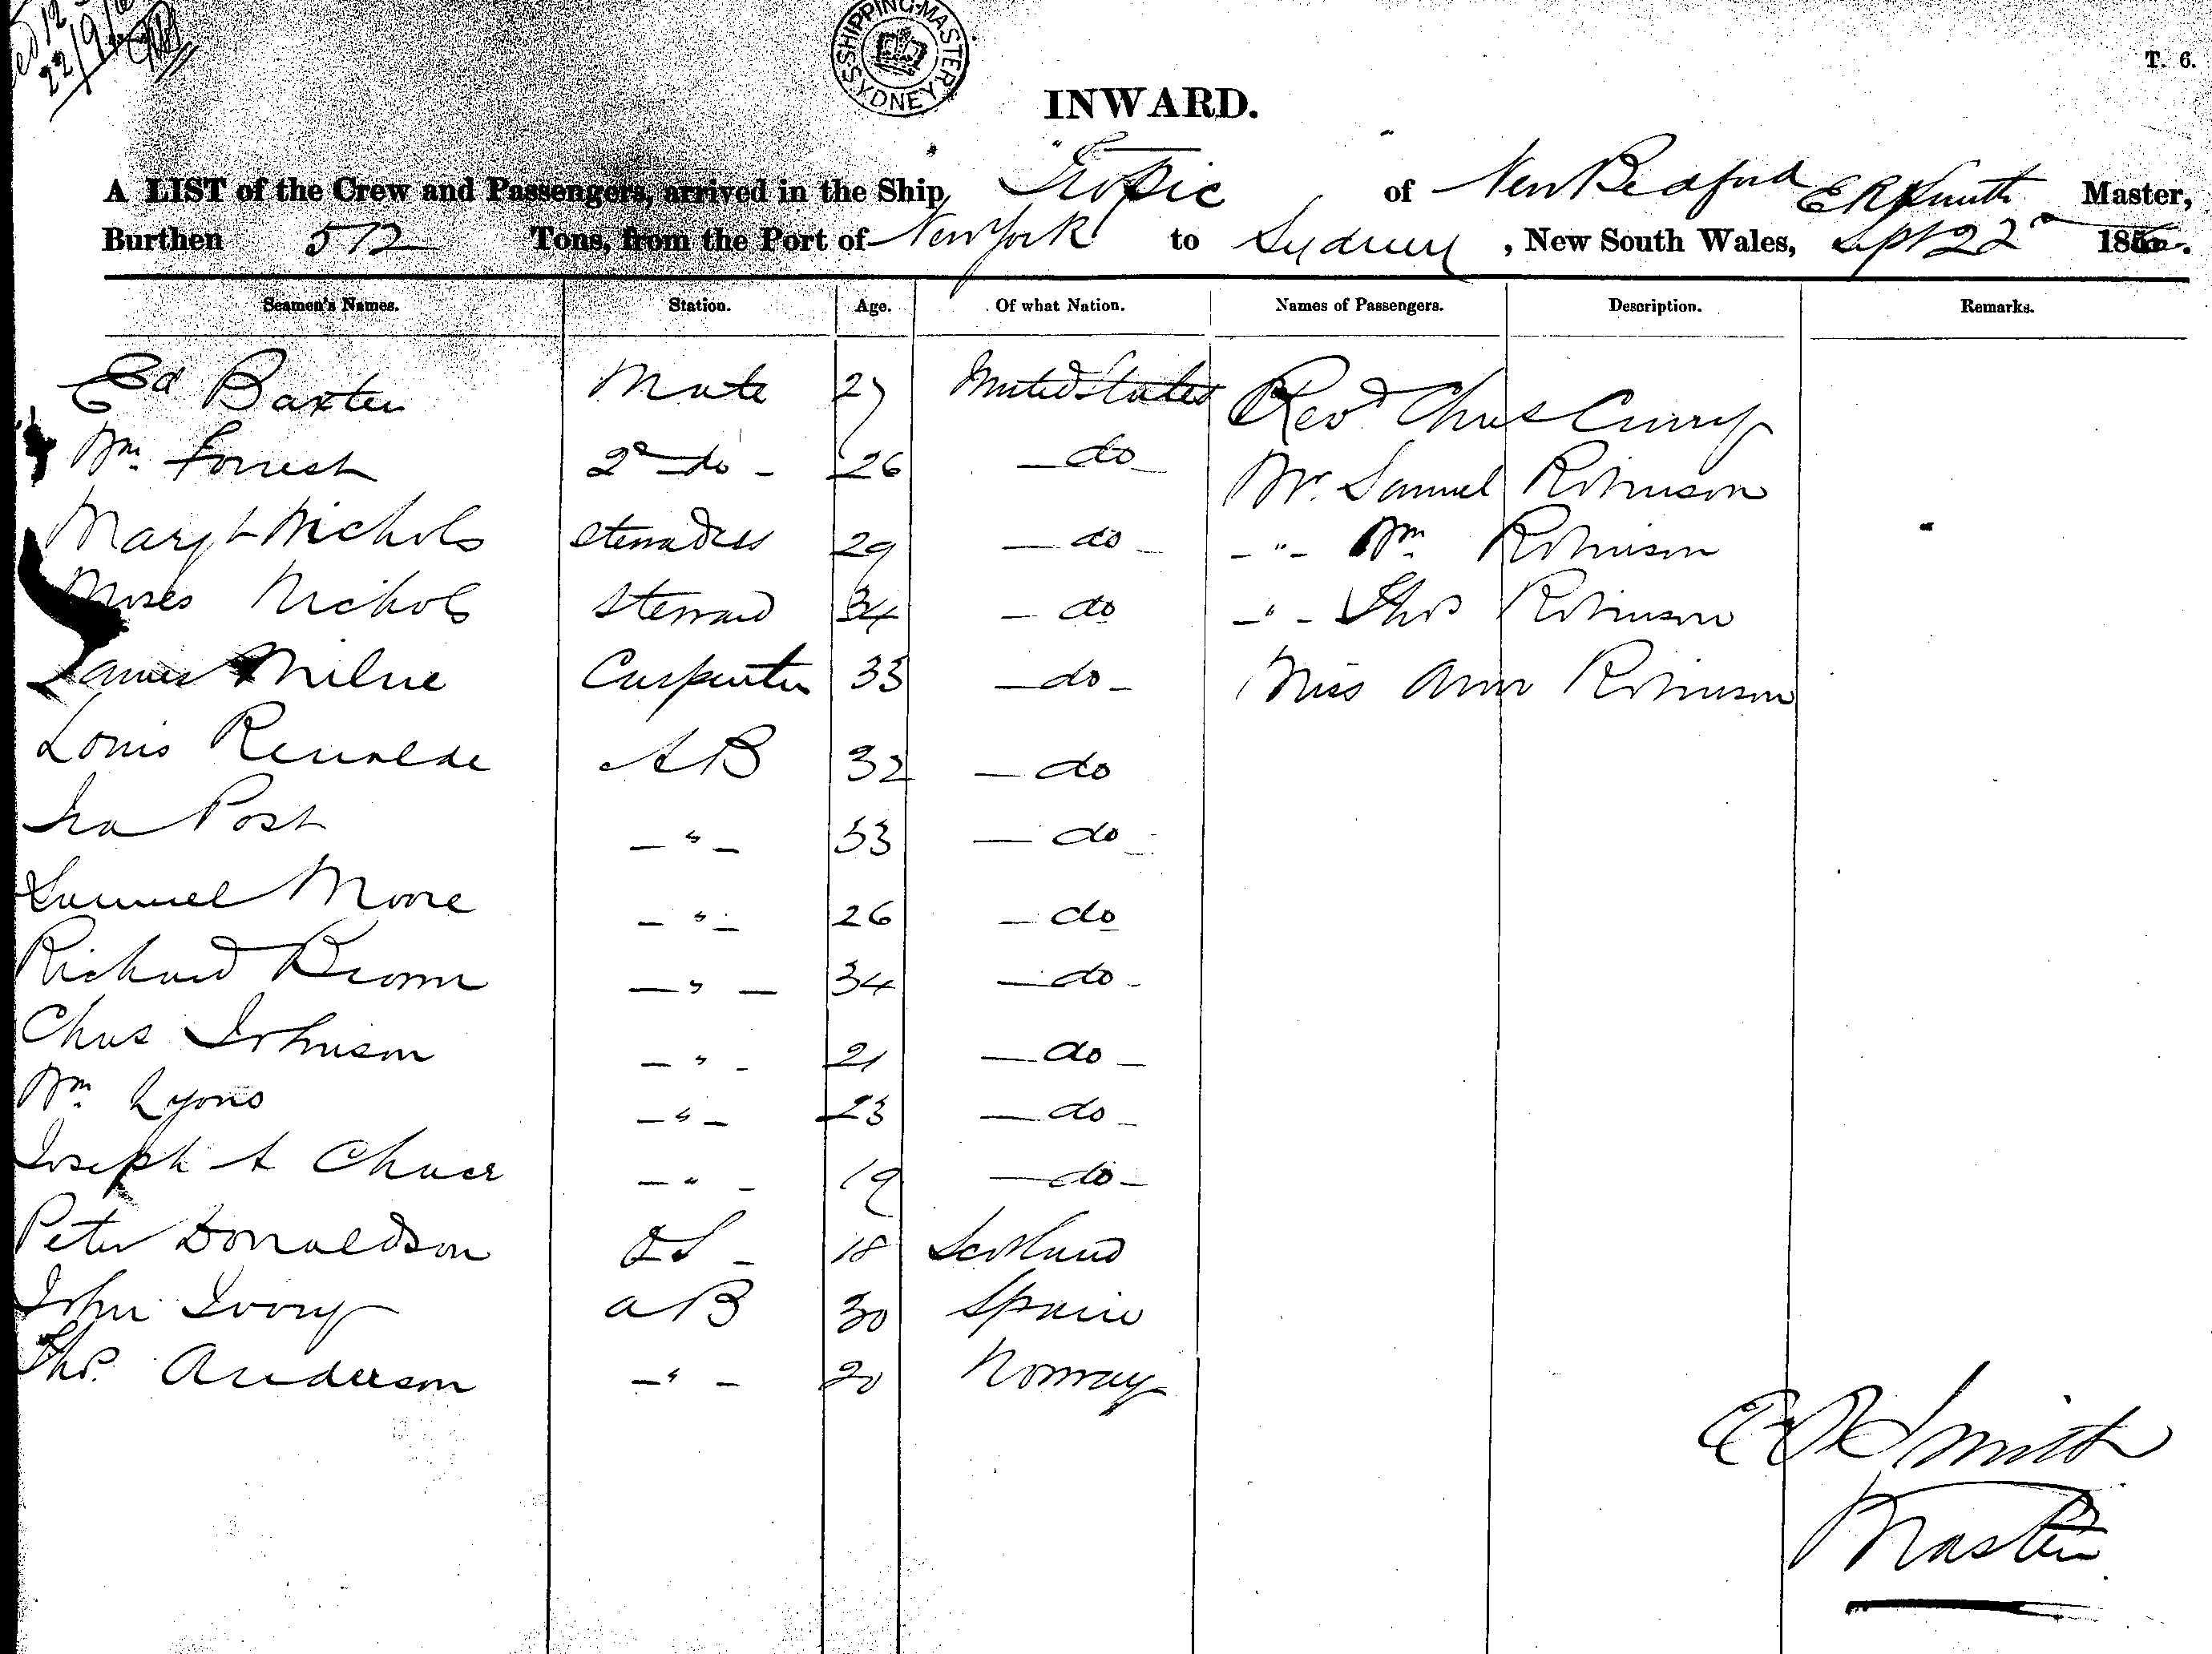 22/9/6
SHIPPING-MASTER SYDNEY
T. 6.
INWARD.
A LIST of the Crew and Passengers, arrived in the Ship "Tropic" of New Bedford E R Smith Master,
Burthen 572 Tons, from the Port of New York to Sydney, New South Wales, Sept 22d 185
Seamen's Names. Station. Age. Of what Nation. Names of Passengers. Description. Remarks.
Ed Baxter Mate 27 United States Revd Chas Curry
Wm. Forrest 2d do - 26 - do - Mr. Samuel Robinson
Mary L Nichols Stewardess 29 - do - - " - Wm Robinson
Moses Nichols Steward 34 - do - " - Thos Robinson
James Milne Carpenter 33 - do - Miss Ann Robinson
Louis AB 32 - do
Ira Post - " - 33 - do -
Samuel Moore - " - 26 - do
Richard Brown - " - 34 - do -
Chas Johnson - " - 21 - do -
Wm. Lyons - " - 23 - do -
Joseph A Chase - " - 19 - do -
Peter Donaldson OS - 18 Scotland
John Ivory AB 30 Spain
Thos. Anderson - " - 20 Norway
E R Smith
Master